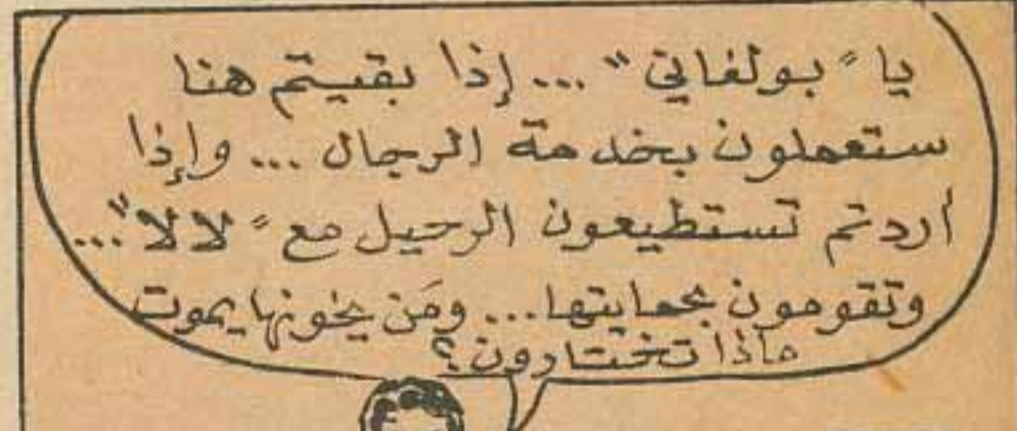 يا "بولغاتي" ... إذا بقيتم هنا
ستعملون بخدمة الرجال ... وإذا
أردتم تستطيعون الرحيل مع "لالا"...
وتقومون بحمايتها... ومَن يخونها يموت
ماذا تختارون؟